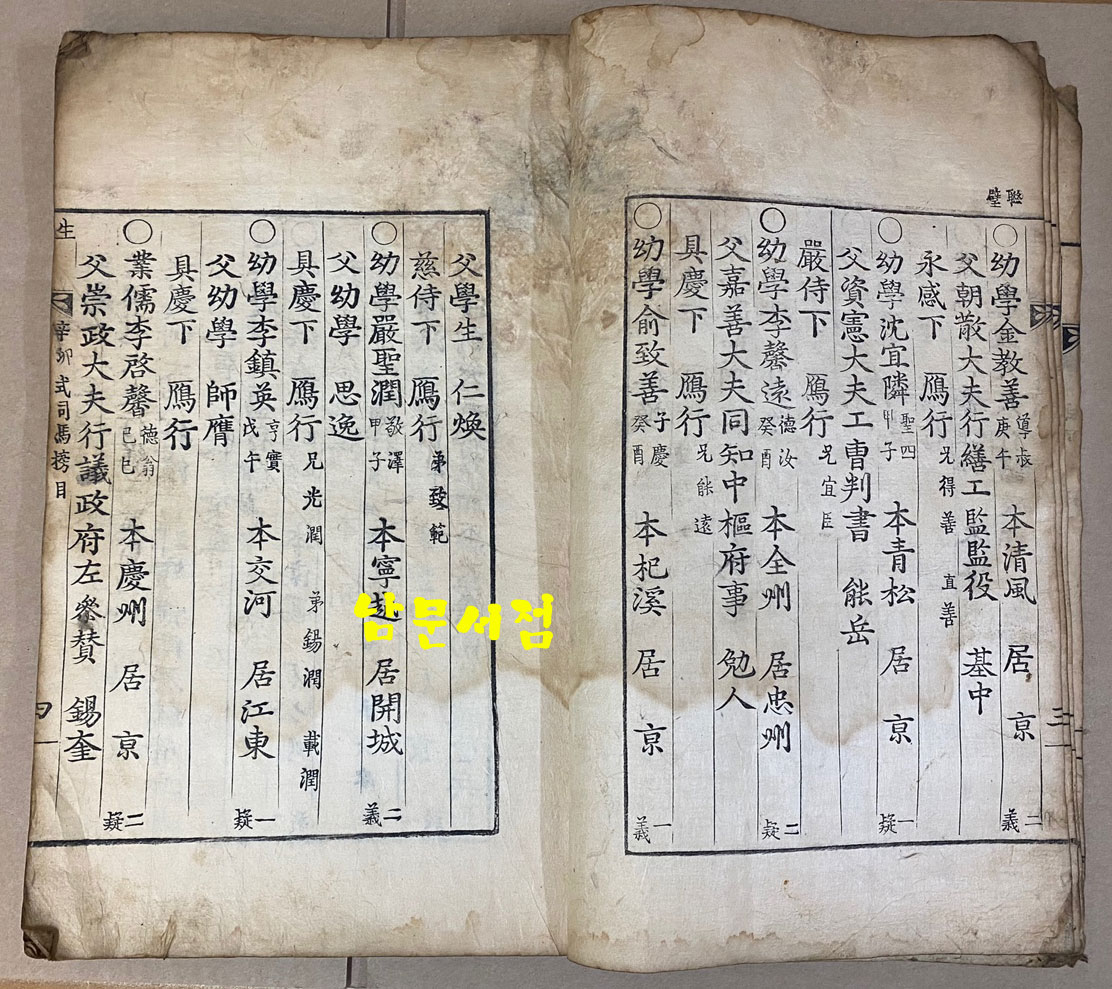 聯璧
○幼學金教善 導哉 庚午 本清風 居京 二義
父朝散大夫行繕工監監役 基中
永感下 鴈行 兄得善 直善
○幼學沈宜隣 聖四 甲子 本青松 居京 一疑
父資憲大夫工曺判書 能岳
嚴侍下 鴈行 兄宜臣
○幼學李馨遠 德汝 癸酉 本全州 居忠州 二疑
父嘉善大夫同知中樞府事 勉人
具慶下 鴈行 兄能遠
○幼學俞致善 子慶 癸酉 本杞溪 居京 一義
父學生 仁煥
慈侍下 鴈行 弟致範
○幼學嚴聖潤 敬澤 甲子 本寧越 居開城 二義
父幼學 思逸
具慶下 鴈行 兄光潤 弟錫潤 載潤
○幼學李鎮英 亨實 戊午 本交河 居江東 一疑
父幼學 師膺
具慶下 鴈行
○業儒李啓馨 德翁 己巳 本慶州 居京 二疑
父崇政大夫行議政府左叅賛 錫奎
生 辛卯式司馬榜目 四
三
남문서점